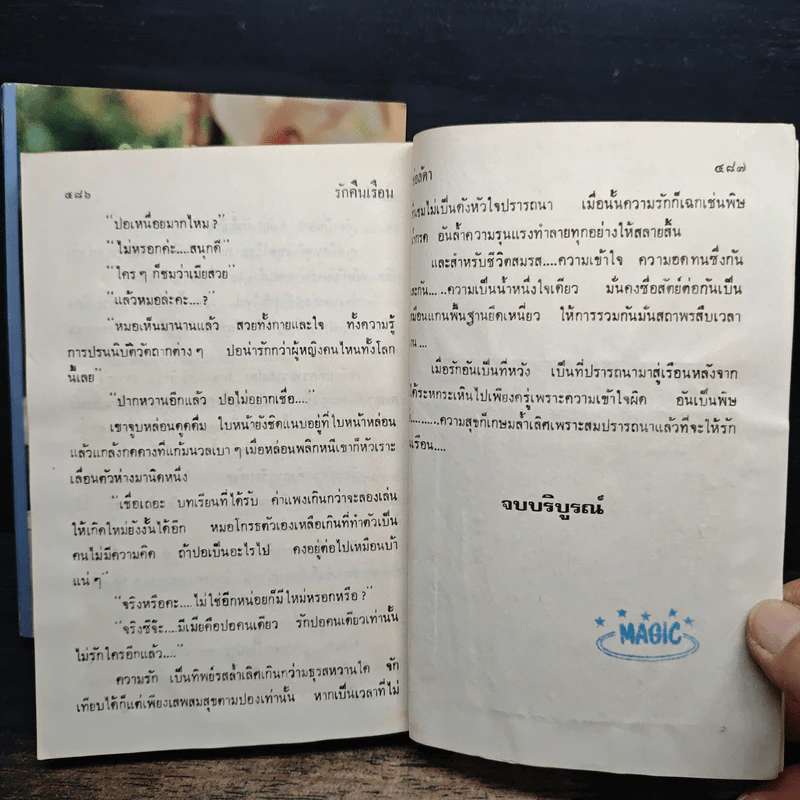 ๔๘๖ รักคืนเรือน
"ปอเหนื่อยมากไหม ?"
"ไม่หรอกค่ะ....สนุกดี"
"ใคร ๆ ก็ชมว่าเมียสวย"
"แล้วหมอล่ะคะ....?"
"หมอเห็นมานานแล้ว สวยทั้งกายและใจ ทั้งความรู้
การปรนนิบัติวัตถากต่าง ๆ ปอน่ารักกว่าผู้หญิงคนไหนทั้งโลก
นี้เลย"
"ปากหวานอีกแล้ว ปอไม่อยากเชื่อ...."
เขาจูบหล่อนดูดดื่ม ใบหน้ายังชิดแนบอยู่ที่ใบหน้าหล่อน
แล้วแกล้งกดคางที่แก้มนวลเบา ๆ เมื่อหล่อนพลิกหนีเขาก็หัวเราะ
เลื่อนตัวห่างมานิดหนึ่ง
"เชื่อเถอะ บทเรียนที่ได้รับ ค่าแพงเกินกว่าจะลองเล่น
ให้เกิดใหม่ยังงั้นได้อีก หมอโกรธตัวเองเหลือเกินที่ทำตัวเป็น
คนไม่มีความคิด ถ้าปอเป็นอะไรไป คงอยู่ต่อไปเหมือนบ้า
แน่ ๆ"
"จริงหรือคะ....ไม่ใช่อีกหน่อยก็มีใหม่หรอกหรือ ?"
"จริงซิจ๊ะ....มีเมียคือปอคนเดียว รักปอคนเดียวเท่านั้น
ไม่รักใครอีกแล้ว...."
ความรัก เป็นทิพย์รสล้ำเลิศเกินกว่ามธุรสหวานใด จัก
เทียบได้ก็แต่เพียงเสพสมสุขตามปองเท่านั้น หากเป็นเวลาที่ไม่
๔๘๗
ไม่เป็นดังหัวใจปรารถนา เมื่อนั้นความรักก็เฉกเช่นพิษ
อันล้ำความรุนแรงทำลายทุกอย่างให้สลายสิ้น
และสำหรับชีวิตสมรส....ความเข้าใจ ความอดทนซึ่งกัน
ความเป็นน้ำหนึ่งใจเดียว มั่นคงซื่อสัตย์ต่อกันเป็น
แกนพื้นฐานยึดเหนี่ยว ให้การรวมกันมั่นสถาพรสืบเวลา
เมื่อรักอันเป็นที่หวัง เป็นที่ปรารถนามาสู่เรือนหลังจาก
ระหกระเหินไปเพียงครู่เพราะความเข้าใจผิด อันเป็นพิษ
ความสุขก็เกษมล้ำเลิศเพราะสมปรารถนาแล้วที่จะให้รัก
เรือน....
จบบริบูรณ์
MAGIC